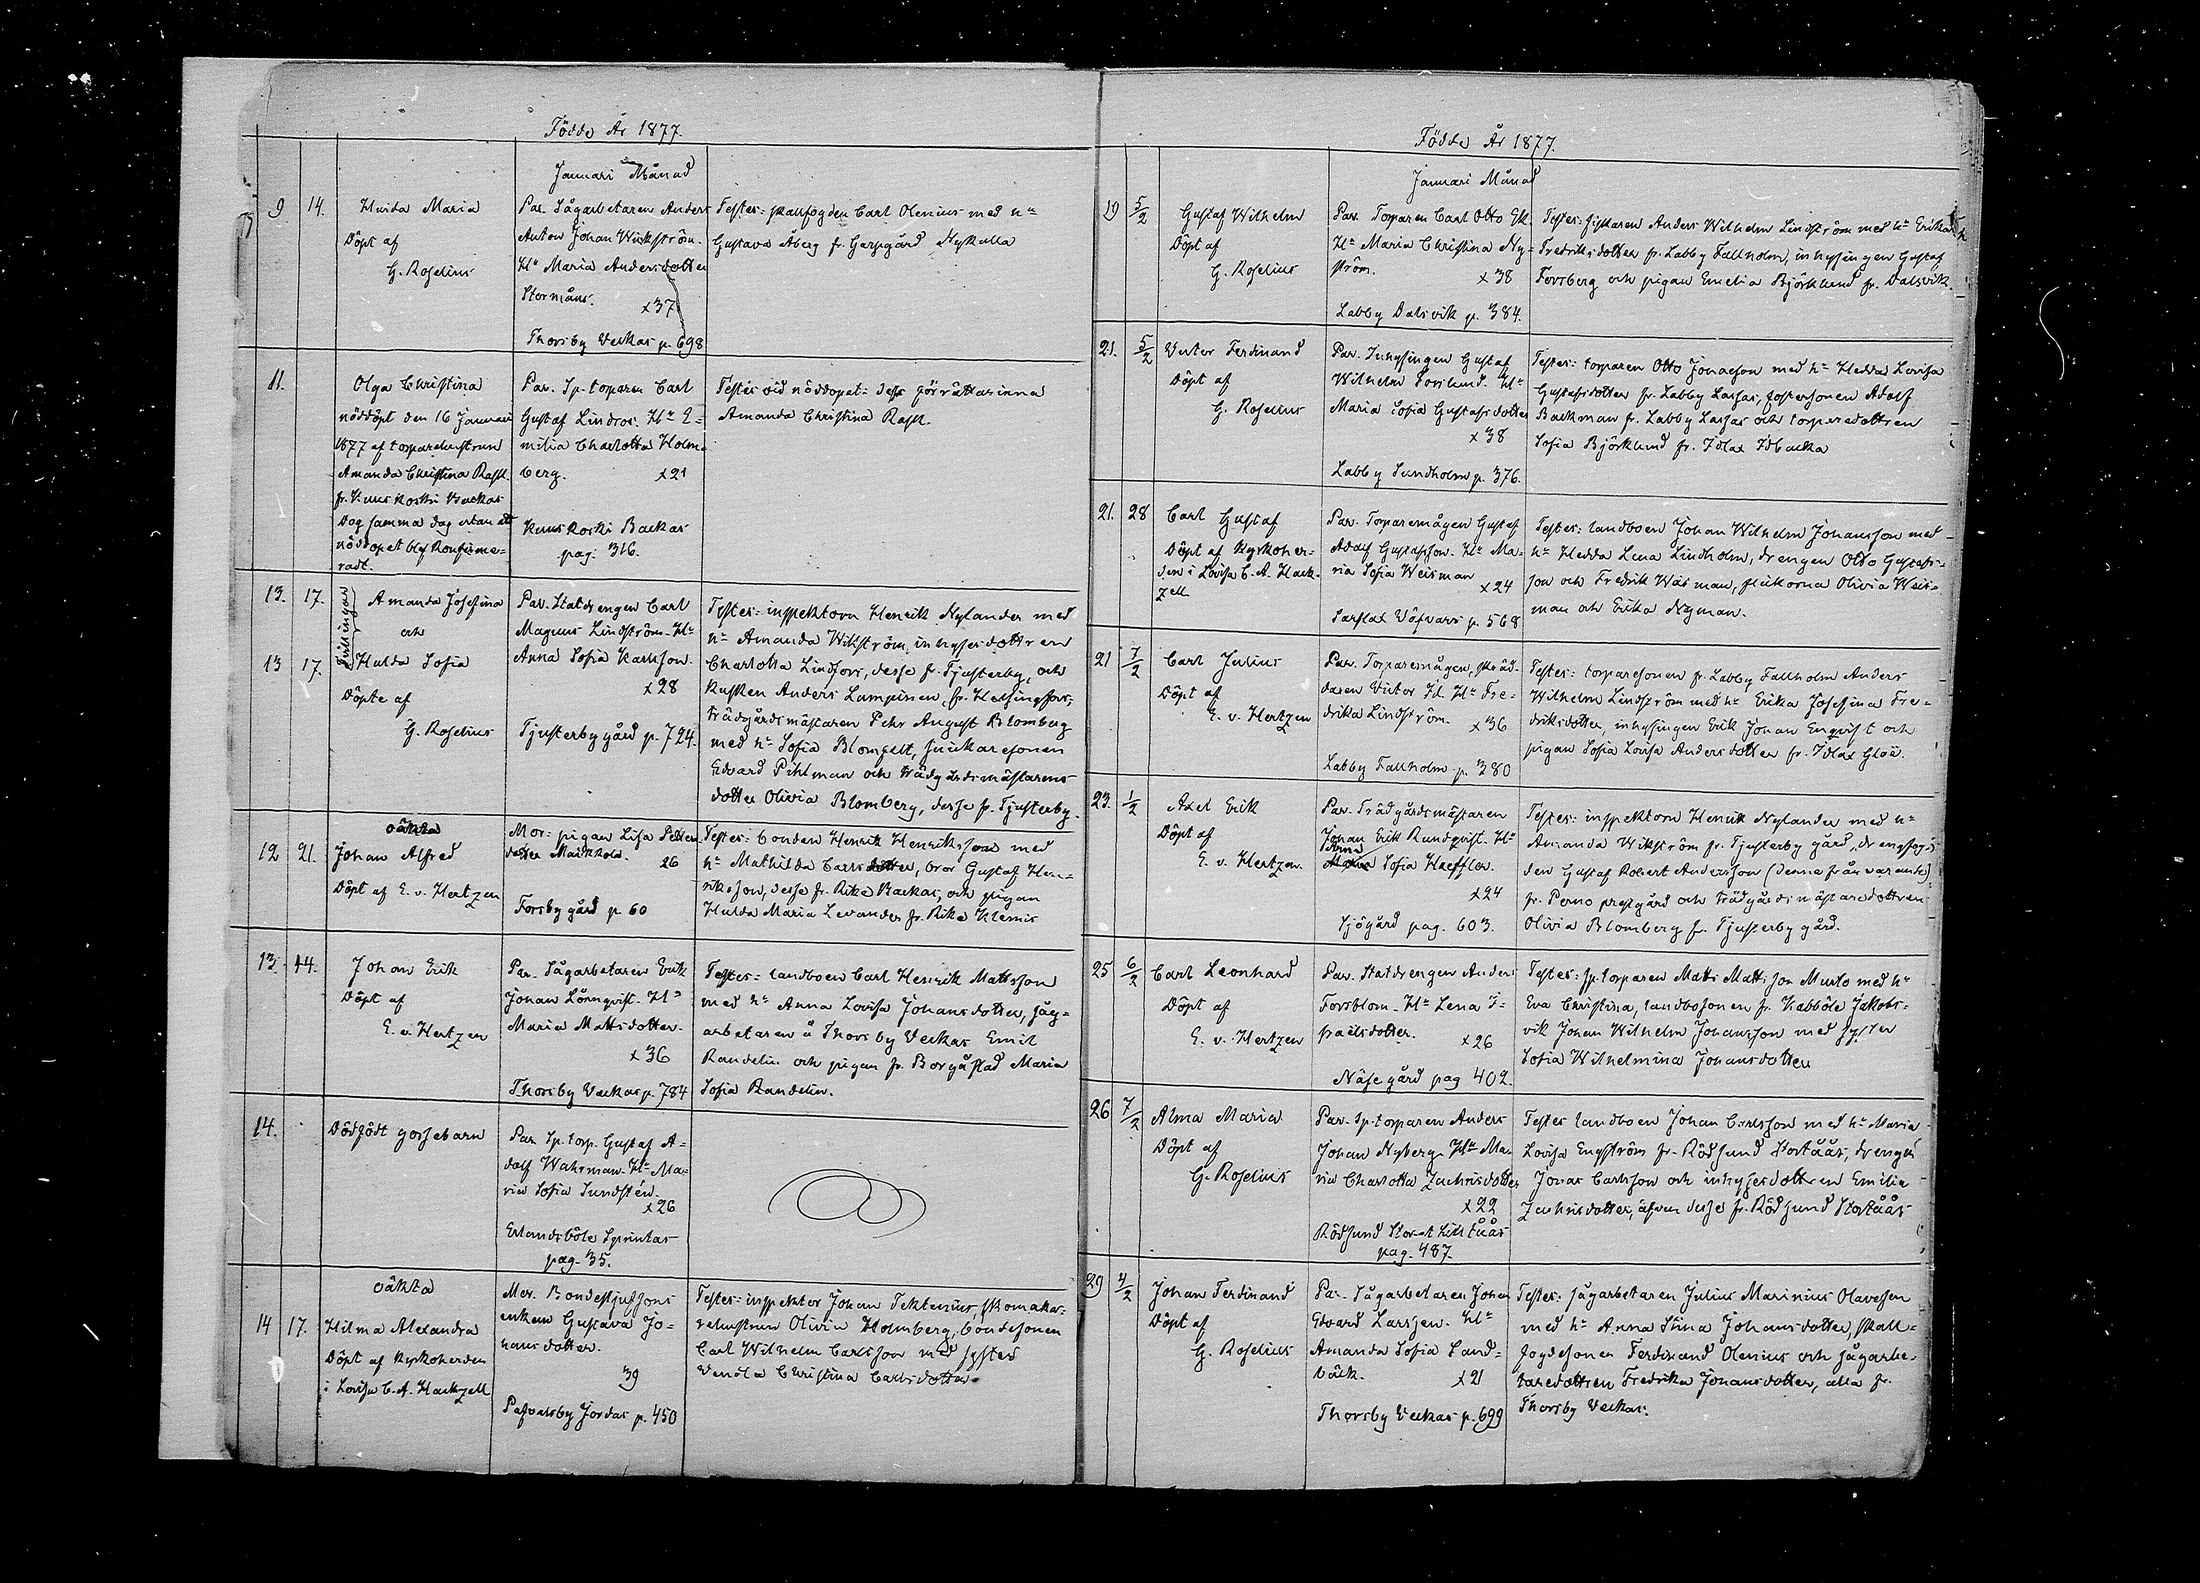 Födde År 1877.
Januari Månad
9 14. Hulda Maria
Döpt af
G. Roselius
Par. Sågarbetaren Anders
Anton Johan Wickström.
Hu Maria Andersdotter
Stormåns.
x37
Thorsby Veckas p. 698
Testes: skallfogden Carl Olenius med hu
Gustava Åberg fr. Gerpgård Nykulla
11. Olga Christina
nöddöpt den 16 Januari
1877 af torparehustrun
Amanda Christina Rask
fr. Kuuskoski Backas
Dog samma dag utan att
nöddopet blef konfirme-
radt.
Par. Sp. torparen Carl
Gustaf Lindros. Hu E-
milia Charlotta Holm-
berg.
x21
Kuuskoski Backas
pag. 316.
Testis vid nöddopet: dess förrättarinna
Amanda Christina Rask.
13. 17. Tvillingar Amanda Josefina
och
13 17. Hulda Sofia
Döpte af
G. Roselius
Par. Statdrengen Carl
Magnus Lindström. Hu
Anna Sofia Karlsson.
x28
Tjusterby gård p. 724.
Testes: inspektorn Henrik Nylander med
hu Amanda Wikström, inhysesdottren
Charlotta Lindfors, desse fr. Tjusterby, och
kusken Anders Lampinen fr. Helsingfors,
trädgårdsmästaren Pehr August Blomberg
med hu Sofia Blomfelt, snickaresonen
Edvard Pihlman och trädgårdsmästarens
dotter Olivia Blomberg, desse fr. Tjusterby.
oäkta
12 21. Johan Alfred
Döpt af E. v. Hertzen
Mor: pigan Lisa Petters
dotter Markkola.
26
Forsby gård p. 60
Testes: bonden Henrik Henriksson med
hu Mathilda Carlsdotter, bror Gustaf Hen-
riksson, desse fr. Rike Backas, och pigan
Hulda Maria Levander fr. Rike Klemis
13. 14. Johan Erik
Döpt af
E. v. Hertzen
Par. Sågarbetaren Erik
Johan Lönnqvist. Hu
Maria Mattsdotter.
x36
Thorsby Veckas p. 784
Testes: landboen Carl Henrik Mattsson
med hu Anna Lovisa Johansdotter, såg-
arbetaren å Thorsby Veckas Emil
Randelin och pigan fr. Borgå stad Maria
Sofia Randelin.
14. Dödfödt gossebarn
Par Sp. torp. Gustaf A-
dolf Wahrman. Hu Ma-
ria Sofia Sundstén.
x26
Erlandsböle Sprintas
pag. 35.
oäkta
14 17. Hilma Alexandra
Döpt af kyrkoherden
i Lovisa C. A. Hackzell
Mor. Bondeskjutsons
enkan Gustava Jo-
hansdotter.
39
Pafvalsby Jordas p. 450
Testes: inspektor Johan Tektenius, skomaka-
rehustrun Olivia Holmberg, bondesonen
Carl Wilhelm Carlsson med syster
Vendla Christina Carlsdotter.
Födde År 1877.
Januari Månad
19 5/2 Gustaf Wilhelm
Döpt af
G. Roselius
Par. Torparen Carl Otto Ek.
Hu Maria Christina Ny-
ström.
x38
Labby Dalsvik p. 384.
Testes: fiskaren Anders Wilhelm Lindström med hu Erika
Fredriksdotter fr. Labby Fallholm, inhysingen Gustaf
Forsberg och pigan Emelia Björklund fr. Dalsvik.
21. 5/2 Victor Ferdinand
Döpt af
G. Roselius
Par. Inhysingen Gustaf
Wilhelm Forslund. Hu
Maria Sofia Gustafsdotter
x38
Labby Sundholm p. 376.
Testes: torparen Otto Jonasson med hu Hedda Lovisa
Gustafsdotter fr. Labby Lassas, fostersonen Adolf
Backman fr. Labby Lassas och torparedottren
Sofia Björklund fr. Idlax Idbacka
21. 28 Carl Gustaf
Döpt af kyrkoher-
den i Lovisa C. A. Hack-
zell
Par. Torparemågen Gustaf
Adolf Gustafsson. Hu Ma-
ria Sofia Weisman
x24
Sarflax Väfvars p. 568
Testes: landboen Johan Wilhelm Johansson med
hu Hedda Lena Lindholm, drengen Otto Gustafs-
son och Fredrik Weisman, flickorna Olivia Weis-
man och Erika Nyman.
21 7/2 Carl Julius
Döpt af
E. v. Hertzen
Par. Torparemågen, skräd-
daren Victor Id. Hu Fre-
drika Lindström.
x36
Labby Fallholm p. 380
Testes: torparesonen fr. Labby Fallholm Anders
Wilhelm Lindström med hu Erika Josefina Fre-
driksdotter, inhysingen Erik Johan Enqvist och
pigan Sofia Lovisa Andersdotter fr. Idlax Gloë.
23. 1/2 Axel Erik
Döpt af
E. v. Hertzen
Par. Trädgårdsmästaren
Johan Erik Rundqvist. Hu
Anna
Sofia Haeffler.
x24
Sjögård pag. 603.
Testes: inspektorn Henrik Nylander med hu
Amanda Wikström fr. Tjusterby gård, drengfog-
den Gustaf Robert Andersson (denne frånvarande)
fr. Perno prestgård och trädgårdsmästaredottren
Olivia Blomberg fr. Tjusterby gård.
25 6/2 Carl Leonhard
Döpt af
E. v. Hertzen
Par. Statdrengen Anders
Forsblom. Hu Lena I-
sraelsdotter.
x26
Näse gård pag 402.
Testes: sp. torparen Matts Mattsson Murto med hu
Eva Christina, landbosonen fr. Kabböle Jakobs-
vik Johan Wilhelm Johansson med syster
Sofia Wilhelmina Johansdotter
26 7/2 Alma Maria
Döpt af
G. Roselius
Par. Sp. torparen Anders
Johan Nyberg. Hu Ma-
ria Charlotta Zachrisdotter
x22
Rödsund Stor-et Lilltåås
pag. 487.
Testes landboen Johan Carlsson med hu Maria
Lovisa Engström fr. Rödsund Stortåås, drengen
Jonas Carlsson och inhysesdottren Emilia
Zachrisdotter, äfven desse fr. Rödsund Stortåås
29 4/2 Johan Ferdinand
Döpt af
G. Roselius
Par. Sågarbetaren Johan
Edvard Larssen. Hu
Amanda Sofia Sand-
bäck.
x21
Thorsby Veckas p. 699
Testes: sågarbetaren Julius Marinius Olavesen
med hu Anna Stina Johansdotter, skall-
fogdesonen Ferdinand Olenius och sågarbe-
taredottren Fredrika Johansdotter, alla fr.
Thorsby Veckas.